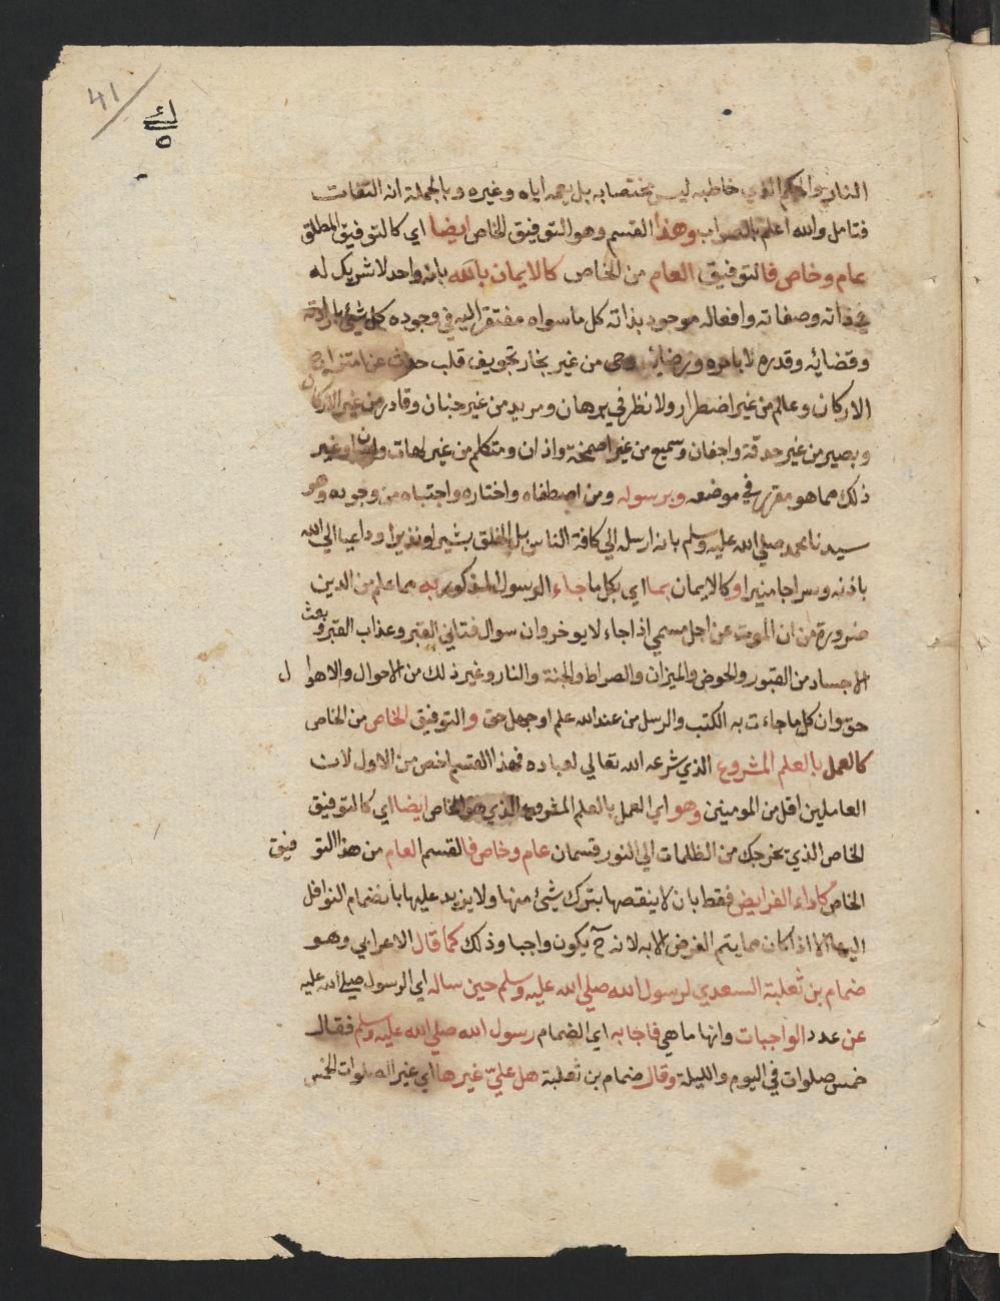 41
النار والحكم الذي خاطبه ليس مختصا به بل يعمه اياه وغيره وبالجملة انه التفات
فتامل والله اعلم بالصواب وهذا القسم وهو التوفيق الخاص ايضا اي كالتوفيق المطلق
عام وخاص فالتوفيق العام من الخاص كالايمان بالله بانه واحد لا شريك له
في ذاته وصفاته وافعاله موجود بذاته كل ما سواه مفتقر اليه في وجوده كل شئ بارادته
وقضائه وقدره لا بامره ورضائه وحي من غير بخار تجويف قلب حدث عن امتزاج
الاركان وعالم من غير اضطرار ولا نظر في برهان ومريد من غير جنان وقادر من غير اركان
وبصير من غير حدقة واجفان وسميع من غير اصمخة واذان ومتكلم من غير لهات ولسان او غير
ذلك مما هو مقرر في موضعه وبرسوله ومن اصطفاه واختاره واجتباه من وجوده وهو
سيدنا محمد صلي الله عليه وسلم بانه ارسل الي كافة الناس بل الخلق بشيرا ونذيرا وداعيا الي الله
باذنه وسراجا منيرا وكالايمان بما اي بكل ما جاء الرسول المذكور به مما علم من الدين
ضرورة من ان الموت عن اجل مسمي اذا جاء لا يوخر وان سوال فتاني القبر وعذاب القبر وبعث
الاجساد من القبور والحوض والميزان والصراط والجنة والنار وغير ذلك من الاحوال والاهوا ل
حق وان كل ما جاءت به الكتب والرسل من عند الله علم او جهل حق والتوفيق الخاص من الخاص
كالعمل بالعلم المشروع الذي شرعه الله تعالي لعباده فهذا القسم اخص من الاول لان
العاملين اقل من المومنين وهو اي العمل بالعلم المشروع الذي هو الخاص ايضا اي كالتوفيق
الخاص الذي يخرجك من الظلمات الي النور قسمان عام وخاص فالقسم العام من هذا التو فيق
الخاص كاداء الفرايض فقط بان لا ينقصها بترك شئ منها ولا يزيد عليها بانضمام النوافل
اليها الا اذا كان مما يتم الفرض الا به لانه ح يكون واجبا وذلك كما قال الاعرابي وهو
ضمام بن ثعلبة السعدي لرسول الله صلي الله عليه وسلم حين ساله اي الرسول صلي الله عليه
عن عدد الواجبات وانها ما هي فاجابه اي لضمام رسول الله صلي الله عليه وسلم فقال
خمس صلوات في اليوم والليلة وقال ضمام بن ثعلبة هل علي غيرها اي غير الصلوات الخمس